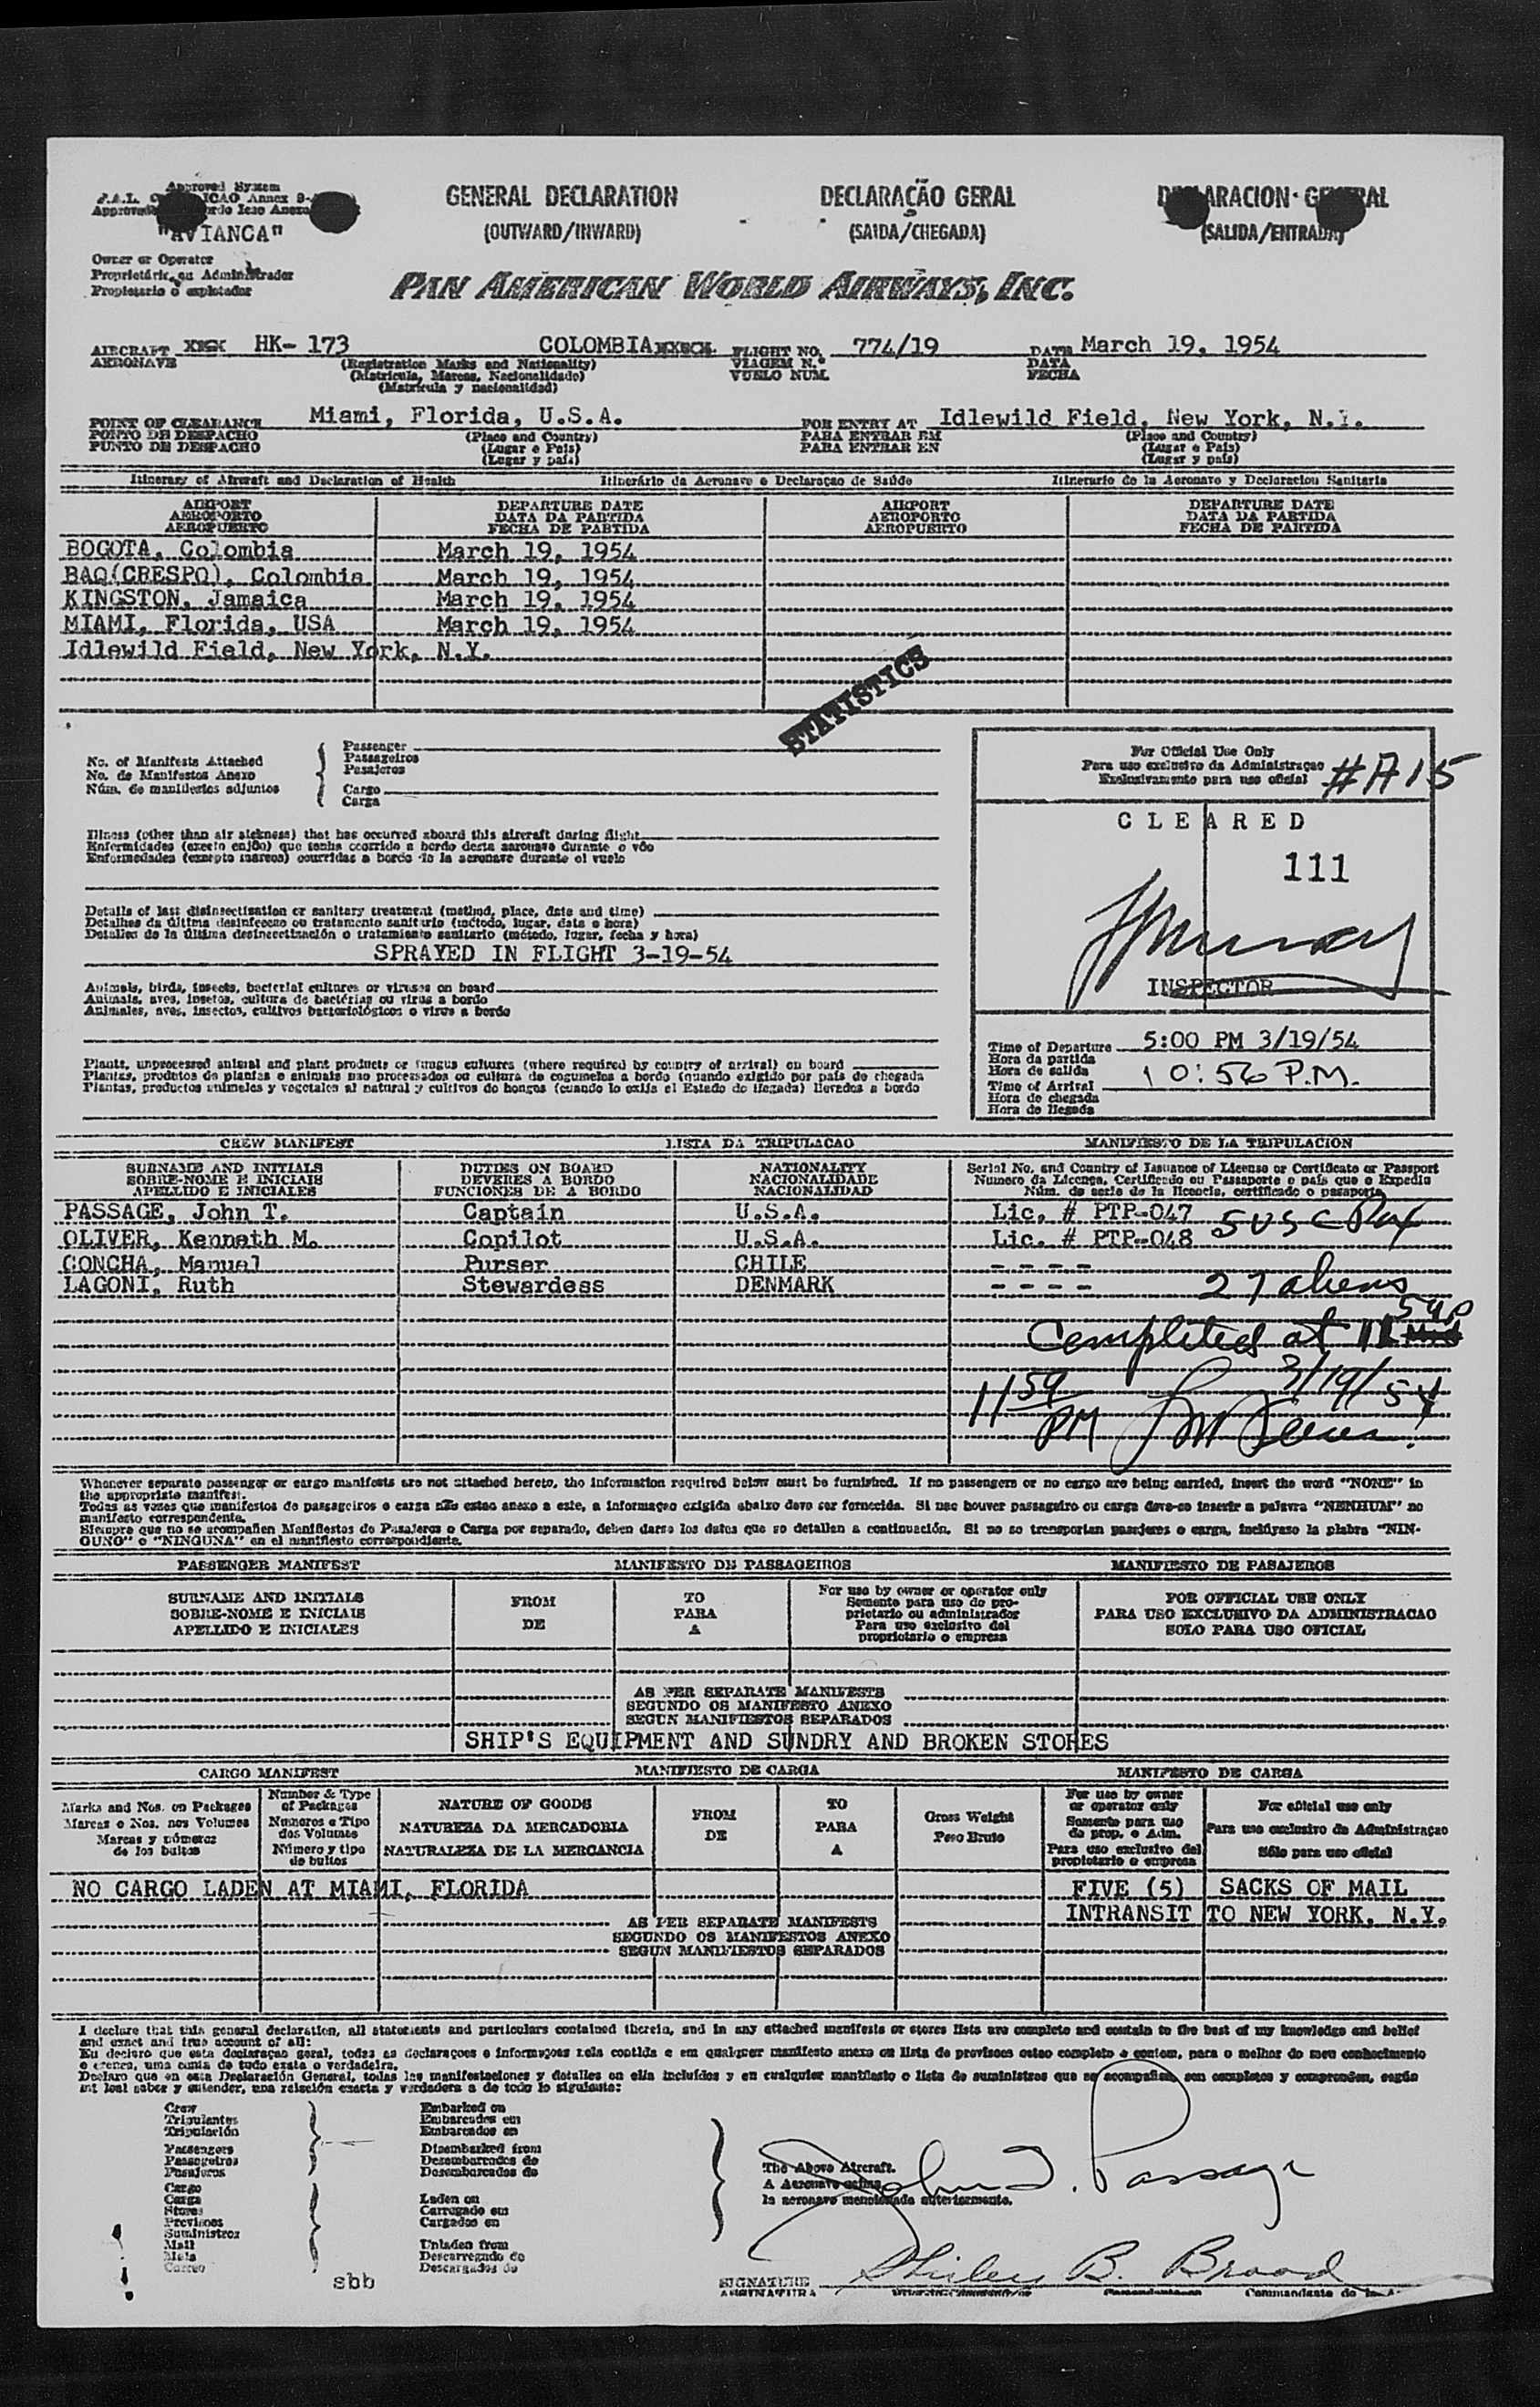 Approved System
ICAO Annex 9-
"AVIANCA"
Owner or Operator
Proprietário ou Administrador
Propietario o explotador
GENERAL DECLARATION
(OUTWARD/INWARD)
DECLARAÇÃO GERAL
(SAIDA/CHEGADA)
(SALIDA/ENTRADA)
PAN AMERICAN WORLD AIRWAYS, INC.
AIRCRAFT HK- 173 COLOMBIA FLIGHT NO. 774/19 DATE March 19, 1954
AERONAVE (Registration Marks and Nationality) VIAGEM N.º DATA
(Matricula, Marcas, Nacionalidade) VUELO NUM. FECHA
(Matrícula y nacionalidad)
POINT OF CLEARANCE Miami, Florida, U.S.A. FOR ENTRY AT Idlewild Field, New York, N.Y.
PONTO DE DESPACHO (Place and Country) PARA ENTRAR EM (Place and Country)
PUNTO DE DESPACHO (Lugar e Pais) PARA ENTRAR EN (Lugar e Pais)
(Lugar y país) (Lugar y país)
Itinerary of Aircraft and Declaration of Health Itinerário da Aeronave e Declaraçao de Saúde Itinerario de la Aeronave y Declaracion Sanitaria
AIRPORT DEPARTURE DATE AIRPORT DEPARTURE DATE
AEROPORTO DATA DA PARTIDA AEROPORTO DATA DA PARTIDA
AEROPUERTO FECHA DE PARTIDA AEROPUERTO FECHA DE PARTIDA
BOGOTA, Colombia March 19, 1954
BAQ(CRESPO), Colombia March 19, 1954
KINGSTON, Jamaica March 19, 1954
MIAMI, Florida, USA March 19, 1954
Idlewild Field, New York, N.Y.
STATISTICS
No. of Manifests Attached
No. de Manifestos Anexo
Núm. de manifiestos adjuntos
Passenger
Passageiros
Pasajeros
Cargo
Carga
Illness (other than air sickness) that has occurred aboard this aircraft during flight
Enfermidades (exceto enjôo) que tenha ocorrido a bordo desta aeronave durante o vôo
Enfermedades (excepto mareos) ocurridas a bordo de la aeronave durante el vuelo
Details of last disinsectisation or sanitary treatment (method, place, date and time)
Detalhes da última desinfeccao ou tratamento sanitario (método, lugar, data e hora)
Detalles de la última desinsectización o tratamiento sanitario (método, lugar, fecha y hora)
SPRAYED IN FLIGHT 3-19-54
Animals, birds, insects, bacterial cultures or viruses on board
Animais, aves, insetos, cultura de bactérias ou virus a bordo
Animales, aves, insectos, cultivos bacteriológicos o virus a bordo
Plants, unprocessed animal and plant products or fungus cultures (where required by country of arrival) on board
Plantas, produtos de plantas e animais nao processados ou cultura de cogumelos a bordo (quando exigido por país de chegada
Plantas, productos animales y vegetales al natural y cultivos de hongos (cuando lo exija el Estado de llegada) llevados a bordo
For Official Use Only
Para uso exclusivo da Administraçao
Exclusivamente para uso oficial
#A15
CLEARED
111
INSPECTOR
Time of Departure 5:00 PM 3/19/54
Hora da partida
Hora de salida
Time of Arrival 10:56 P.M.
Hora de chegada
Hora de llegada
CREW MANIFEST LISTA DA TRIPULACAO MANIFIESTO DE LA TRIPULACION
SURNAME AND INITIALS DUTIES ON BOARD NATIONALITY Serial No. and Country of Issuance of License or Certificate or Passport
SOBRE-NOME E INICIAIS DEVERES A BORDO NACIONALIDADE Numero da Licença, Certificado ou Passaporte e país que o Expediu
APELLIDO E INICIALES FUNCIONES DE A BORDO NACIONALIDAD Núm. de serie de la licencia, certificado o pasaporte
PASSAGE, John T. Captain U.S.A. Lic. # PTP-047
OLIVER, Kenneth M. Copilot U.S.A. Lic. # PTP-048
5 USC Pax
CONCHA, Manuel Purser CHILE - - - -
LAGONI, Ruth Stewardess DENMARK - - - -
27 aliens
Completed at 11 59P
3/19/54
11 59 PM
Whenever separate passenger or cargo manifests are not attached hereto, the information required below must be furnished. If no passengers or no cargo are being carried, insert the word "NONE" in
the appropriate manifest.
Todas as vezes que manifestos de passageiros e carga não estao anexo a este, a informaçao exigida abaixo deve ser fornecida. Si nao houver passageiro ou carga deve-se inserir a palavra "NENHUM" no
manifesto correspondente.
Siempre que no se acompañen Manifiestos de Pasajeros o Carga por separado, deben darse los datos que se detallan a continuación. Si no se transportan pasajeros o carga, inclúyase la plabra "NIN-
GUNO" o "NINGUNA" en el manifiesto correspondiente.
PASSENGER MANIFEST MANIFESTO DE PASSAGEIROS MANIFIESTO DE PASAJEROS
SURNAME AND INITIALS FROM TO For use by owner or operator only FOR OFFICIAL USE ONLY
SOBRE-NOME E INICIAIS DE PARA Somente para uso do pro- PARA USO EXCLUSIVO DA ADMINISTRACAO
APELLIDO E INICIALES A prietario ou administrador SOLO PARA USO OFICIAL
Para uso exclusivo del
proprietario o empresa
AS PER SEPARATE MANIFESTS
SEGUNDO OS MANIFESTO ANEXO
SEGUN MANIFIESTOS SEPARADOS
SHIP'S EQUIPMENT AND SUNDRY AND BROKEN STORES
CARGO MANIFEST MANIFIESTO DE CARGA MANIFESTO DE CARGA
Marks and Nos. on Packages
Marcas e Nos. nos Volumes
Marcas y números
de los bultos
Number & Type
of Packages
Numeros e Tipo
dos Volumes
Número y tipo
de bultos
NATURE OF GOODS
NATUREZA DA MERCADORIA
NATURALEZA DE LA MERCANCIA
FROM
DE
TO
PARA
A
Gross Weight
Peso Bruto
For use by owner
or operator only
Somente para uso
do prop. e Adm.
Para uso exclusivo del
propietario o empresa
For official use only
Para uso exclusivo da Administraçao
Sólo para uso oficial
NO CARGO LADEN AT MIAMI, FLORIDA FIVE (5) SACKS OF MAIL
INTRANSIT TO NEW YORK, N.Y.
AS PER SEPARATE MANIFESTS
SEGUNDO OS MANIFESTOS ANEXO
SEGUN MANIFIESTOS SEPARADOS
I declare that this general declaration, all statements and particulars contained therein, and in any attached manifests or stores lists are complete and contain to the best of my knowledge and belief
and exact and true account of all:
Eu declaro que esta declaraçao geral, todas as declaraçoes e informaçoes nela contida e em qualquer manifesto anexo ou lista de provisoes estao completo e contem, para o melhor do meu conhecimento
e crenca, uma conta de tudo exata e verdadeira.
Declaro que en esta Declaración General, todas las manifestaciones y detalles en ella incluídos y en cualquier manifiesto o lista de suministros que se acompañen, son completos y comprenden, según
mi leal saber y entender, una relación exacta y verdadera de todo lo siguiente:
Crew
Tripulantes
Tripulación
Passengers
Passageiros
Pasajeros
Cargo
Carga
Stores
Previsoes
Suministros
Mail
Mala
Correo
sbb
Embarked on
Embarcados em
Embarcados en
Disembarked from
Desembarcados de
Desembarcados de
Laden on
Carregado em
Cargados en
Unladen from
Descarregado de
Descargados de
The Above Aircraft.
A Aeronave acima
la aeronave mencionada anteriormente.
John T. Passage
Shirley B. Brood
SIGNATURE
ASSINATURA
Commandante